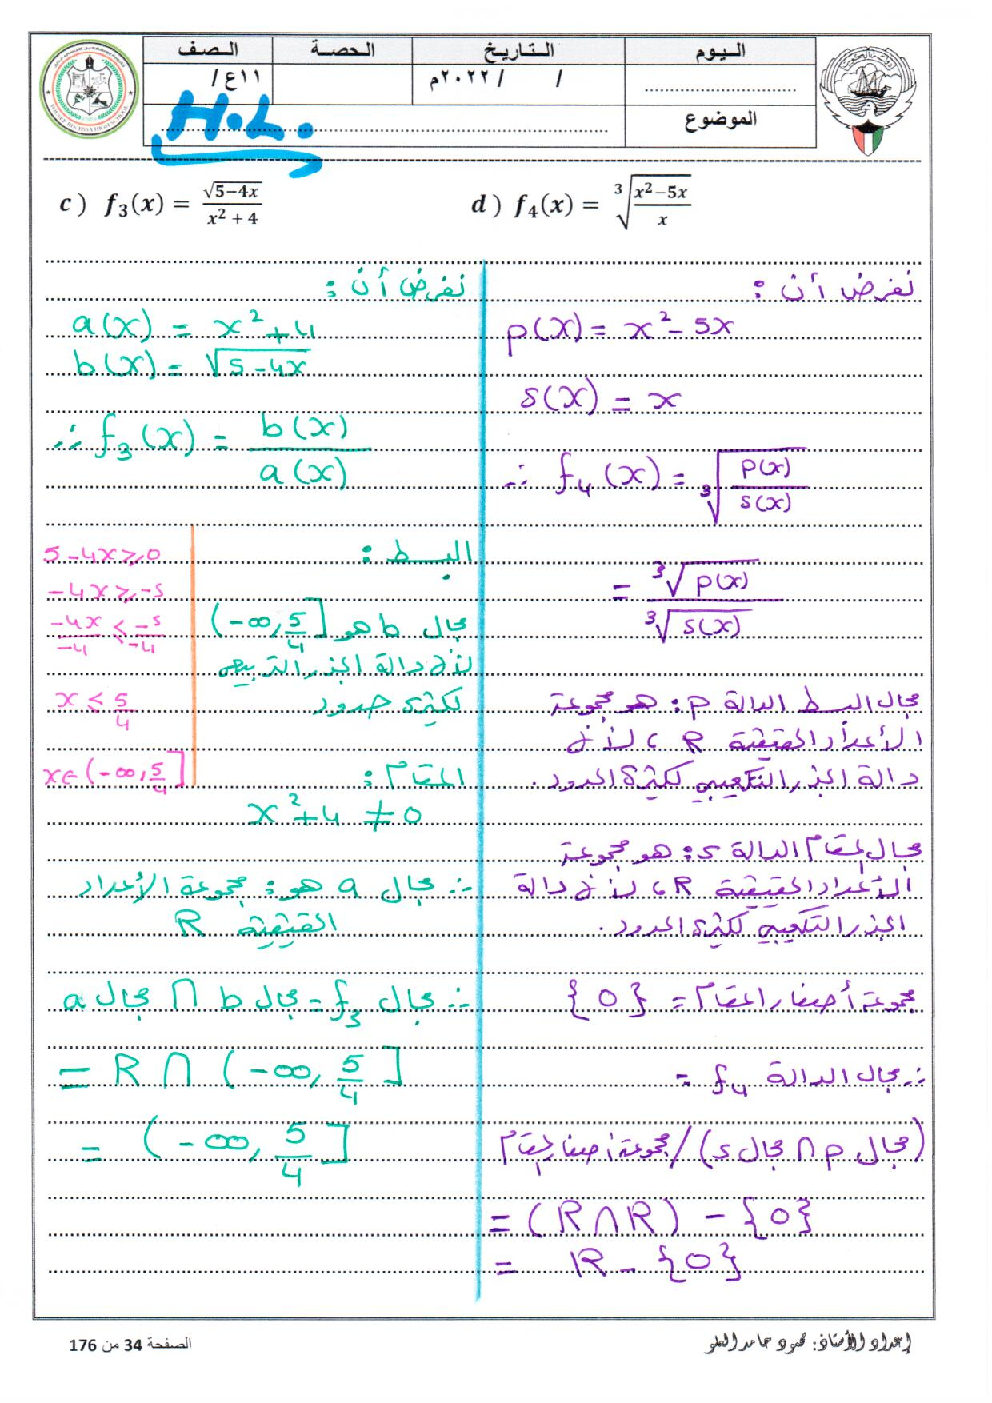 اليوم
التاريخ
الحصة
الصف
/ / ٢٠٢٢م
١١ع/
الموضوع
H.L.
c ) f₃(x) = √5−4x / x² + 4
d ) f₄(x) = ³√(x²−5x / x)
نفرض أن :
a(x) = x² + 4
b(x) = √5-4x
∴ f₃(x) = b(x) / a(x)
البسط :
مجال b هو (-∞, 5/4]
لأن دالة الجذر التربيعي
لكثيرة حدود
5-4x ≥ 0
-4x ≥ -5
-4x/-4 ≤ -5/-4
x ≤ 5/4
x ∈ (-∞, 5/4]
المقام :
x² + 4 ≠ 0
∴ مجال a هو : مجموعة الأعداد
الحقيقية R
∴ مجال f₃ = مجال b ∩ مجال a
= R ∩ (-∞, 5/4]
= (-∞, 5/4]
نفرض أن :
p(x) = x² - 5x
s(x) = x
∴ f₄(x) = ³√(p(x) / s(x))
= ³√p(x) / ³√s(x)
مجال البسط الدالة p : هو مجموعة
الأعداد الحقيقية R ، لأن
دالة الجذر التكعيبي لكثيرة الحدود .
مجال المقام الدالة s : هو مجموعة
الأعداد الحقيقية R ، لأن دالة
الجذر التكعيبي لكثيرة الحدود .
مجموعة أصفار المقام = {0}
∴ مجال الدالة f₄ =
(مجال p ∩ مجال s) / مجموعة أصفار المقام
= (R ∩ R) - {0}
= R - {0}
إعداد الأستاذ : محمود حامد
الصفحة 34 من 176